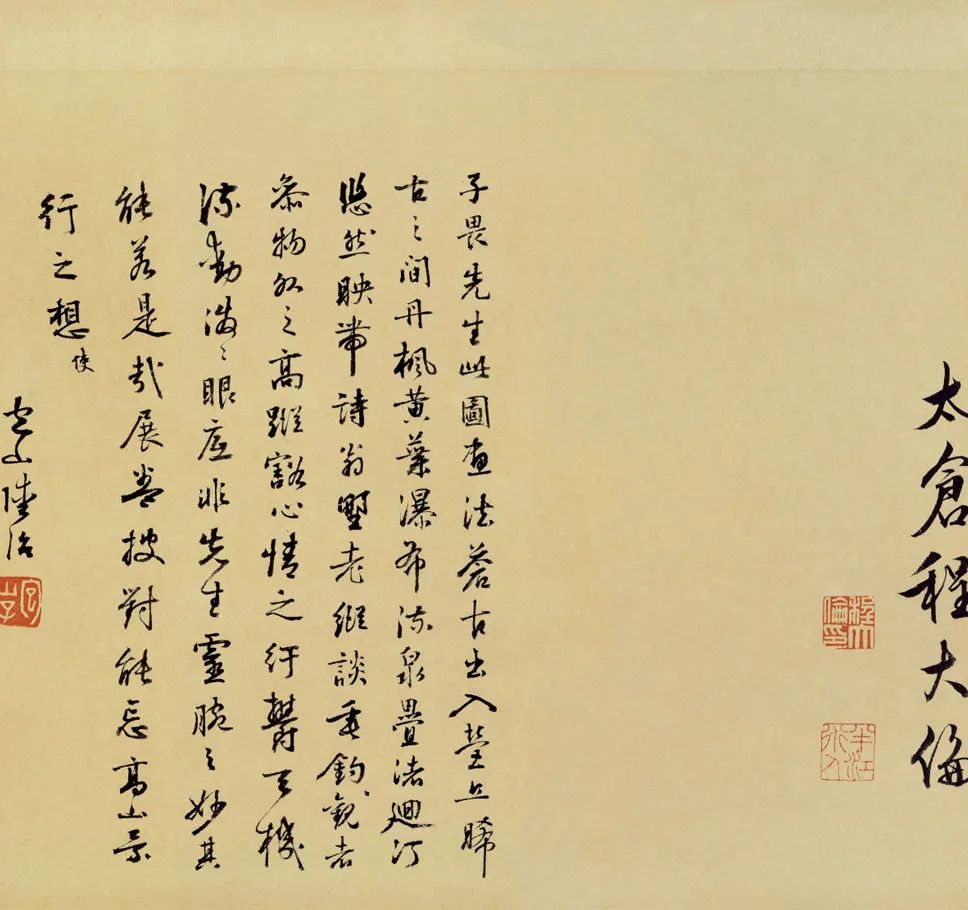 太倉程大倫
子畏先生此圖畫法蒼古出入營丘晞
古之間丹楓黃葉瀑布流泉疊渚迴汀
悠然映帶詩翁野老縱談垂釣觀者
忝物外之高蹤豁心情之紆鬱天機
流動潑潑眼底非先生靈腕之妙其
能若是哉展卷披對能忘高山景
行之想
包山陸治